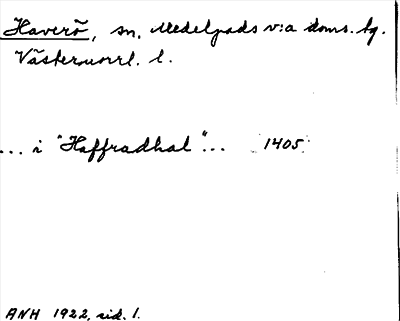 Haverö, sn, Medelpads v:a doms. tg.
Västernorrl. l.
... i "Haffradhal"... 1405
ANH 1922, sid. 1.